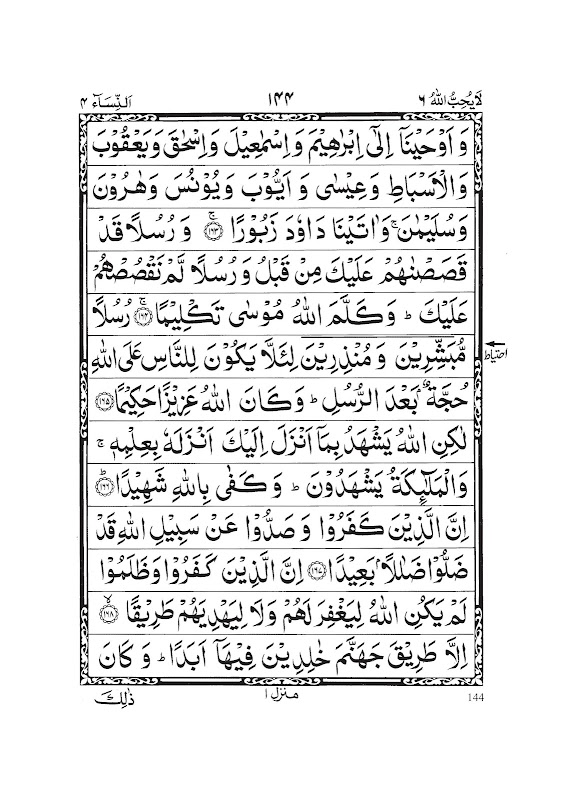 لَا يُحِبُّ اللهُ ٦ ١٤٤ اَلنِّسَآء ٤
وَ اَوْحَيْنَاۤ اِلٰۤى اِبْرٰهِيْمَ وَ اِسْمٰعِيْلَ وَ اِسْحٰقَ وَ يَعْقُوْبَ
وَ الْاَسْبَاطِ وَ عِيْسٰى وَ اَيُّوْبَ وَ يُوْنُسَ وَ هٰرُوْنَ
وَ سُلَيْمٰنَ ۚ وَ اٰتَيْنَا دَاوٗدَ زَبُوْرًا ۚ ﴿۱۶۳﴾ وَ رُسُلًا قَدْ
قَصَصْنٰهُمْ عَلَيْكَ مِنْ قَبْلُ وَ رُسُلًا لَّمْ نَقْصُصْهُمْ
عَلَيْكَ ؕ وَ كَلَّمَ اللهُ مُوْسٰى تَكْلِيْمًا ۚ ﴿۱۶۴﴾ رُسُلًا
مُّبَشِّرِيْنَ وَ مُنْذِرِيْنَ لِئَلَّا يَكُوْنَ لِلنَّاسِ عَلَى اللهِ
احتياط
حُجَّةٌۢ بَعْدَ الرُّسُلِ ؕ وَ كَانَ اللهُ عَزِيْزًا حَكِيْمًا ﴿۱۶۵﴾
لٰكِنِ اللهُ يَشْهَدُ بِمَاۤ اَنْزَلَ اِلَيْكَ اَنْزَلَهٗ بِعِلْمِهٖ ۚ
وَ الْمَلٰٓئِكَةُ يَشْهَدُوْنَ ؕ وَ كَفٰى بِاللهِ شَهِيْدًا ؕ ﴿۱۶۶﴾
اِنَّ الَّذِيْنَ كَفَرُوْا وَ صَدُّوْا عَنْ سَبِيْلِ اللهِ قَدْ
ضَلُّوْا ضَلٰلًۢا بَعِيْدًا ﴿۱۶۷﴾ اِنَّ الَّذِيْنَ كَفَرُوْا وَ ظَلَمُوْا
لَمْ يَكُنِ اللهُ لِيَغْفِرَ لَهُمْ وَ لَا لِيَهْدِيَهُمْ طَرِيْقًا ۙ ﴿۱۶۸﴾
اِلَّا طَرِيْقَ جَهَنَّمَ خٰلِدِيْنَ فِيْهَاۤ اَبَدًا ؕ وَ كَانَ
144 منزل ١ ذٰلِكَ